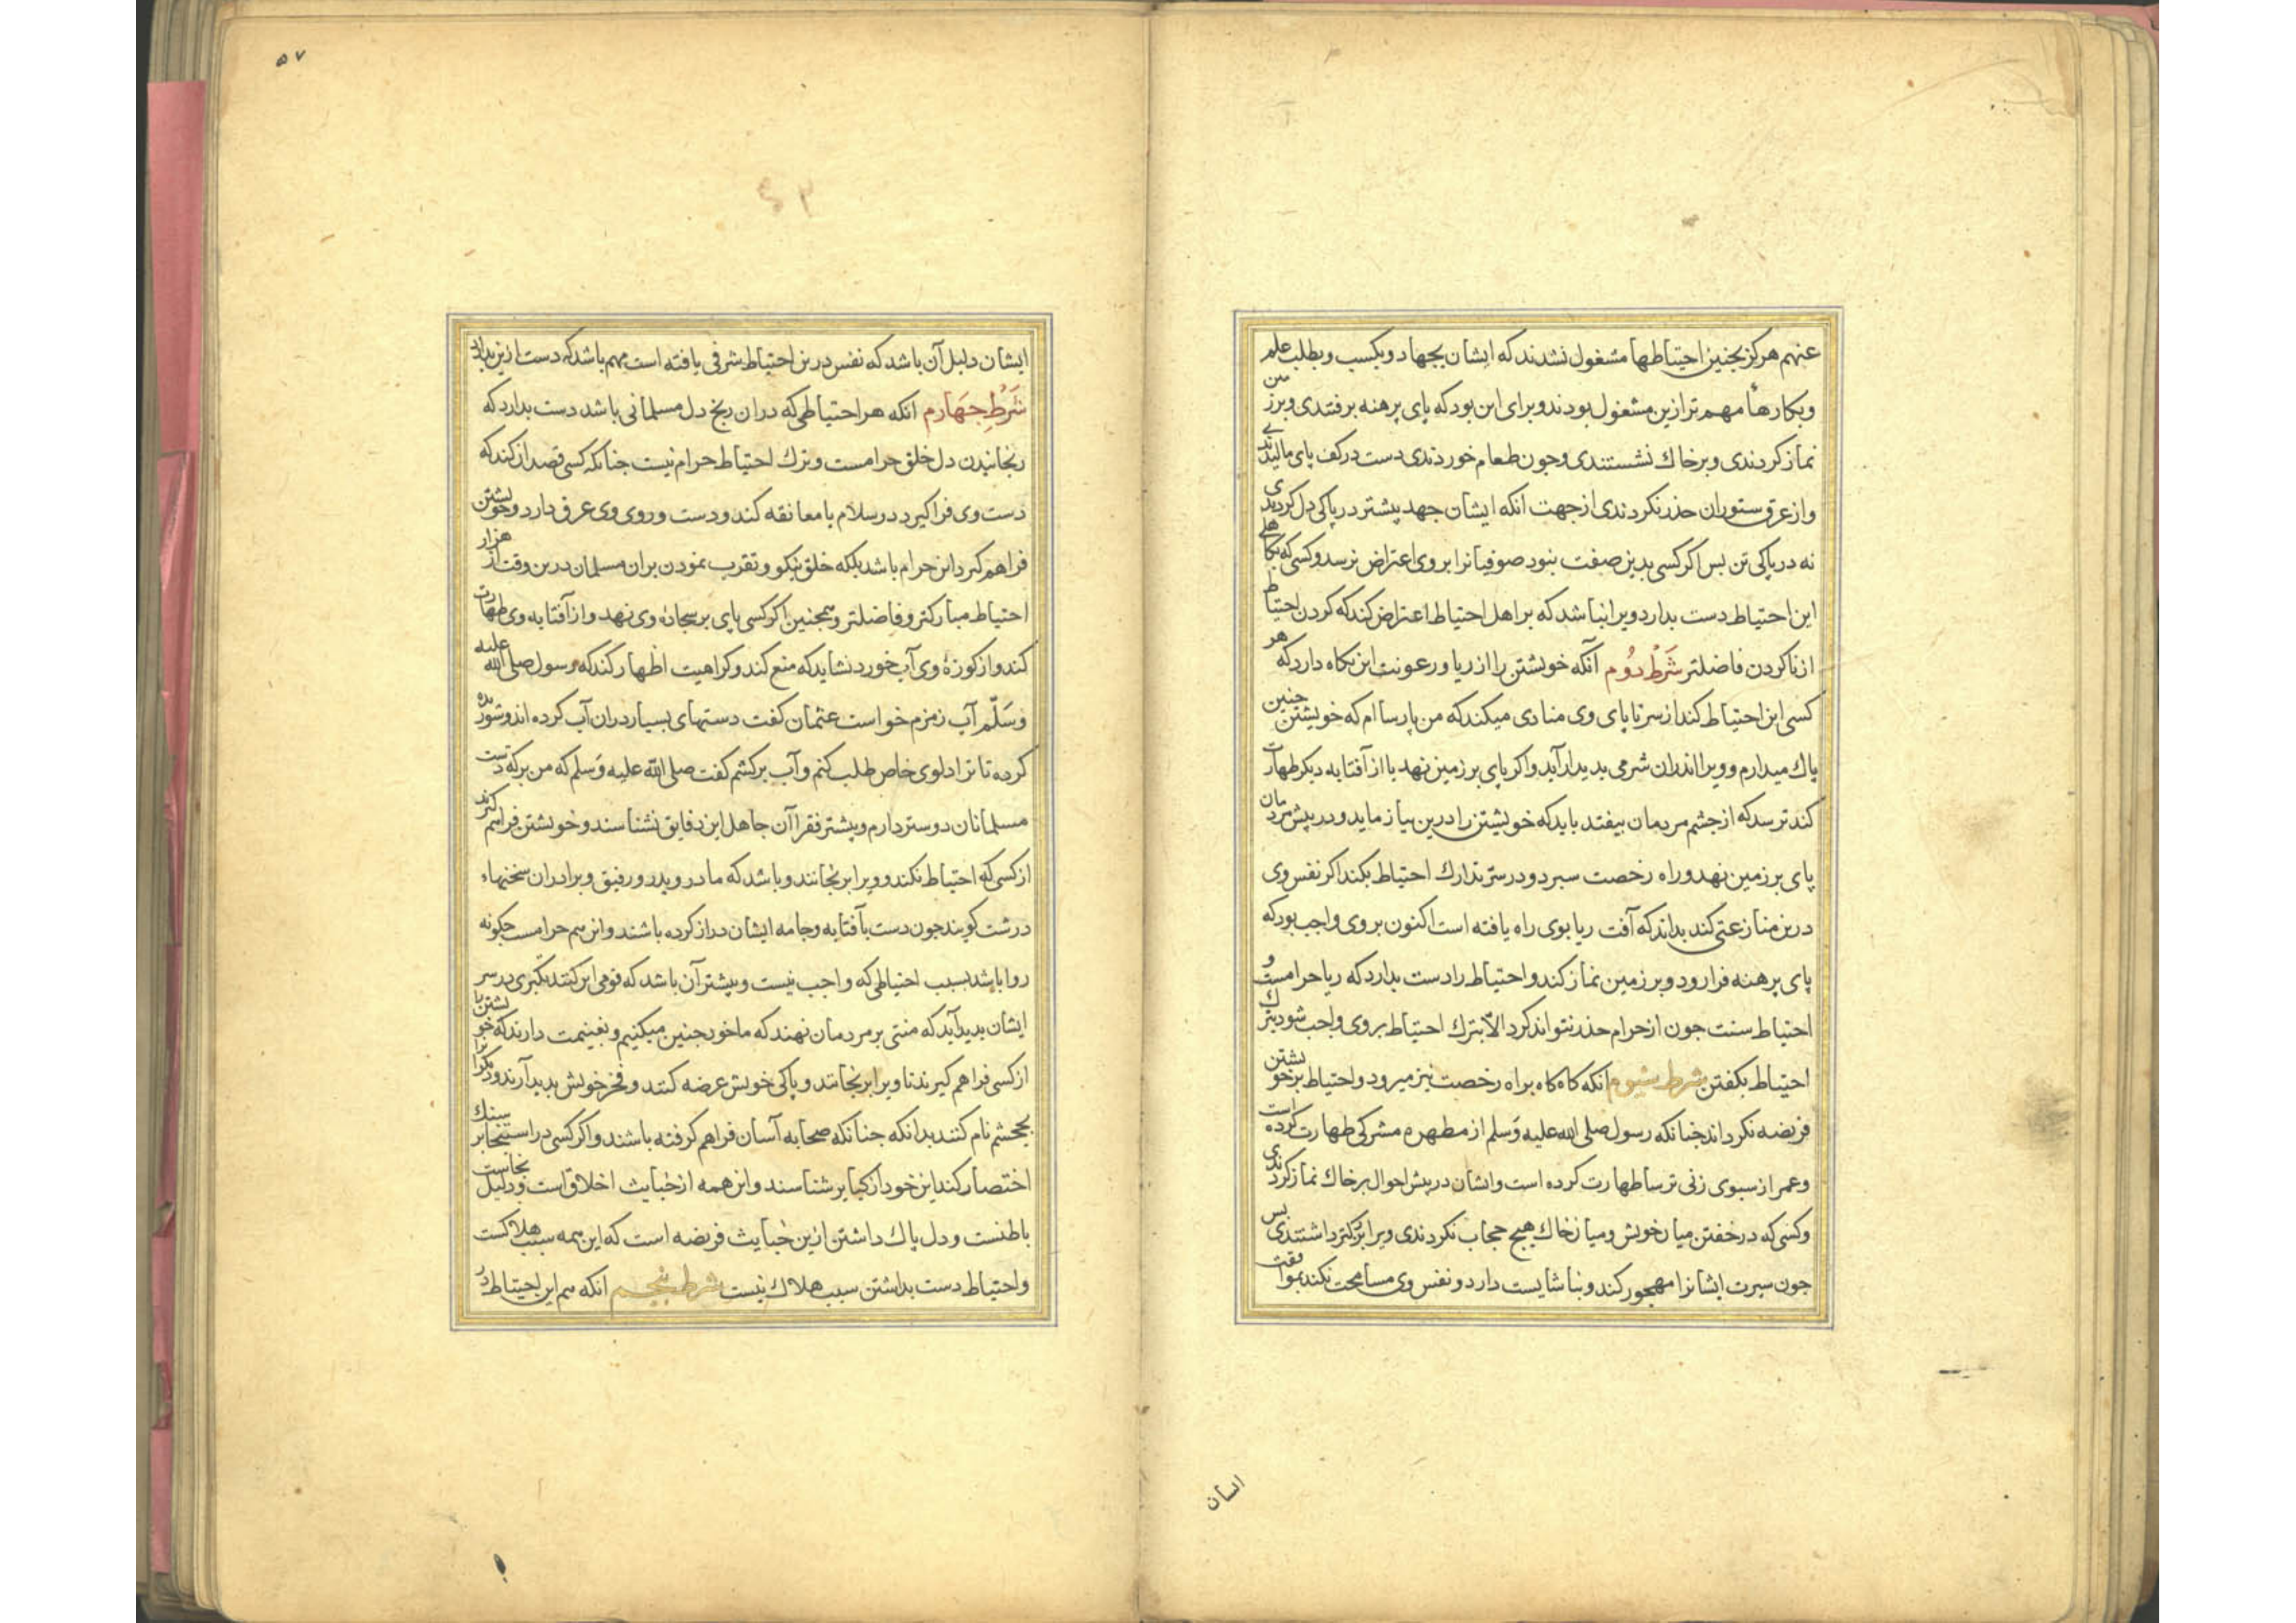 عنهم هرکز بجنین احتیاطها مشغول نشدند که ایشان بجهاد و بکسب و بطلب علم
و بکارهاء مهم تر ازین مشغول بودند و برای این بود که پای برهنه برفتندی و بر زمین
نماز کردندی و بر خاك نشستندی و جون طعام خوردندی دست در کف پای مالیدندی
و از عرق ستوران حذر نکردندی از جهت انکه ایشان جهد بیشتر در پاکی دل کردندی
نه در پاکی تن بس اکر کسی بدین صفت بنود صوفیانرا بر وی اعتراض نرسد و کسی که بکاهلی
این احتیاط دست بدارد ویرا نباشد که بر اهل احتیاط اعتراض کند که کردن احتیاط
از ناکردن فاضلتر شرط دوم آنکه خویشتن را از ریا و رعونت این نکاه دارد که هر
کسی این احتیاط کند از سر تا پای وی منادی میکند که من پارسا ام که خویشتن جنین
پاك میدارم و ویرا اندران شرمی بدیدار آید و اکر پای بر زمین نهد یا از آفتابه دیکر طهارت
کند ترسد که از جشم مردمان بیفتد باید که خویشتن را درین بیازماید و در پیش مردمان
پای بر زمین نهد و راه رخصت سبرد و در سرّ تدارك احتیاط بکند اکر نفس وی
درین منازعتی کند بداند که آفت ریا بوی راه یافته است اکنون بر وی واجب بود که
پای برهنه فرا رود و بر زمین نماز کند و احتیاط را دست بدارد که ریا حرامست و
احتیاط سنت جون از حرام حذر نتواند کرد الاّ بترك احتیاط بر وی واجب شود بترك
احتیاط بکفتن شرط سیوم انکه کاه کاه براه رخصت نیز میرود و احتیاط بر خویشتن
فریضه نکرداند جنانکه رسول صلی الله علیه وَسلم از مطهره مشرکی طهارت کرده است
و عمر از سبوی زنی ترسا طهارت کرده است و ایشان در بیش احوال بر خاك نماز کردندی
و کسی که در خفتن میان خویش و میان خاك هیچ حجاب نکردندی ویرا بزرکتر داشتندی بس
جون سیرت ایشانرا مهجور کند و بناشایست دارد و نفس وی مسامحت نکند بموافقت
ایشان
۵۷
ایشان دلیل آن باشد که نفس درین احتیاط شرفی یافته است مهم باشد که دست ازین بدارد
شَرْطِ جهَارم انکه هر احتیاطی که دران رنج دل مسلمانی باشد دست بدارد که
رنجانیدن دل خلق حرامست و ترك احتیاط حرام نیست جنانکه کسی قصد ان کند که
دست وی فرا کیرد در سلام یا معانقه کند و دست و روی وی عرق دارد و خویشتن
فراهم کیرد این حرام باشد بلکه خلق نیکو و تقرب نمودن بران مسلمان درین وقت از هزار
احتیاط مبارکتر و فاضلتر و همجنین اکر کسی پای بر سجاده وی نهد و از آفتابه وی طهارت
کند و از کوزهٔ وی آب خورد نشاید که منع کند و کراهیت اظهار کند که رسول صلی الله علیه
وسَلّم آب زمزم خواست عثمان کفت دستهای بسیار دران آب کرده اند و شوریده
کرده تا ترا دلوی خاص طلب کنم و آب برکشم کفت صلی الله علیه وَسلم که من برکه دست
مسلمانان دوستر دارم و بیشتر فقراآن جاهل این دقایق نشناسند و خویشتن فراهم کیرند
از کسی که احتیاط نکند و ویرا برنجانند و باشد که مادر و پدر و رفیق و برادران سخنهاء
درشت کویند جون دست بآفتابه و جامه ایشان دراز کرده باشند و این هم حرامست جکونه
روا باشد بسبب احتیاطی که واجب نیست و بیشتر آن باشد که قومی این کنند تکبری در سر
ایشان بدید آید که منتی بر مردمان نهند که ما خود جنین میکنیم و بغنیمت دارند که خویشتن را
از کسی فراهم کیرند تا ویرا برنجانند و پاکی خویش عرضه کنند و فخر خویش بدید آرند و دیکرانرا
بجشم نام کنند بدانکه جنانکه صحابه آسان فراهم کرفته باشند و اکر کسی در استنجا بر سنك
اختصار کند این خود از کبایر شناسند و این همه از خبایث اخلاق است و دلیل نجاست
باطنست و دل پاك داشتن ازین خبایث فریضه است که این همه سبب هلاکست
و احتیاط دست بداشتن سبب هلاك نیست شرط پنجم انکه هم این احتیاط در